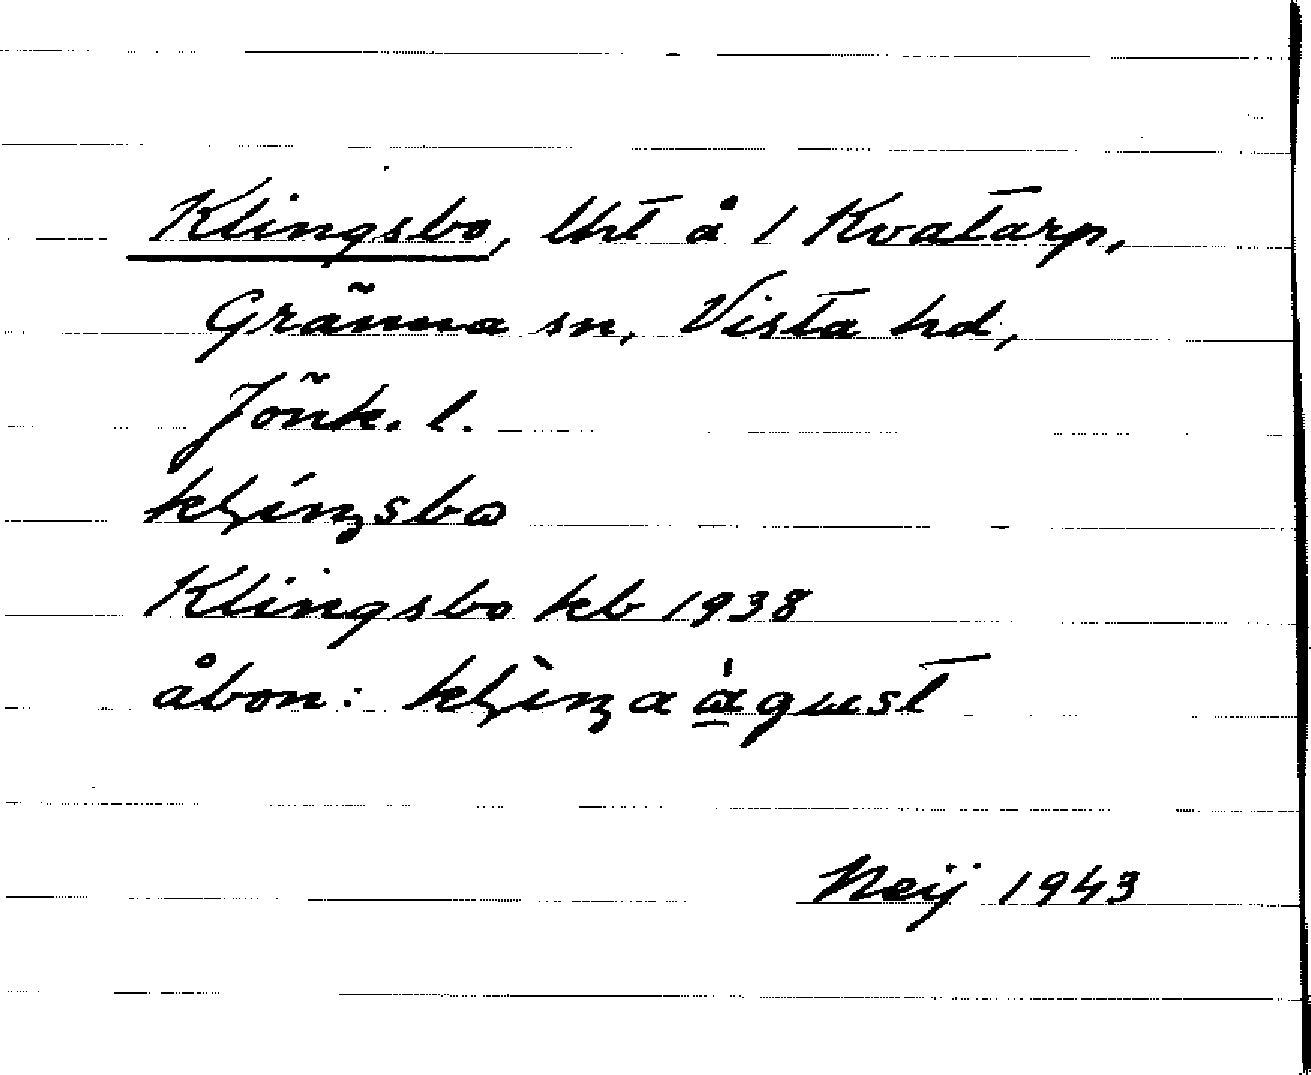 Klingsbo, lht å 1 Kvatarp,
Gränna sn, Vista hd,
Jönk. l.
klíŋsbɷ
Klingsbo kb 1938
åbon: klìŋa àgust
Neij 1943